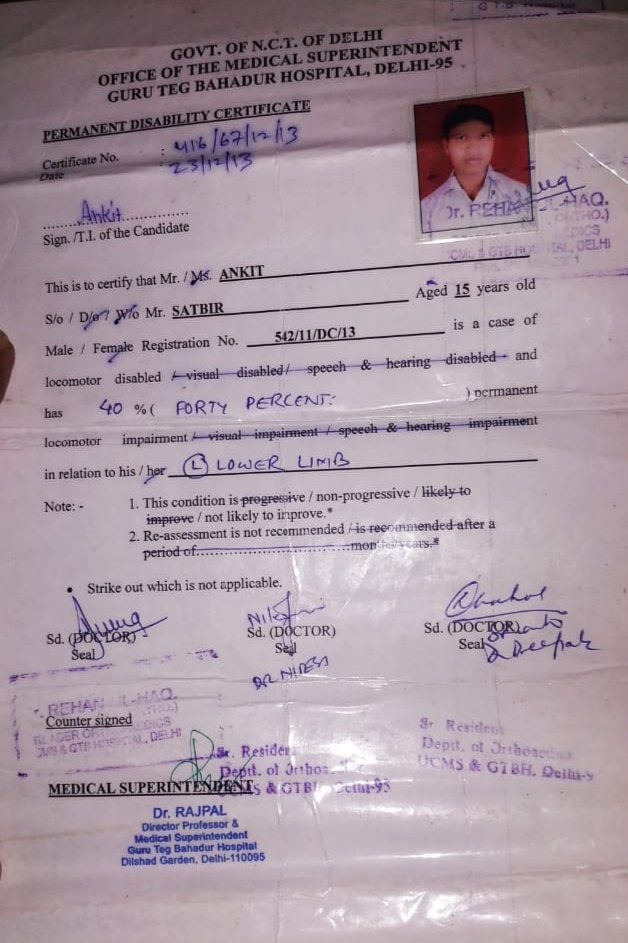 GOVT. OF N.C.T. OF DELHI
OFFICE OF THE MEDICAL SUPERINTENDENT
GURU TEG BAHADUR HOSPITAL, DELHI-95
PERMANENT DISABILITY CERTIFICATE
Certificate No. : 416/67/12/13
Date : 23/12/13
Ankit
Sign. /T.I. of the Candidate
Dr. REHAN UL-HAQ.
UCMS & GTB HOSPITAL, DELHI
This is to certify that Mr. / Ms. ANKIT
S/o / D/o / W/o Mr. SATBIR Aged 15 years old
Male / Female Registration No. 542/11/DC/13 is a case of
locomotor disabled / visual disabled / speech & hearing disabled and
has 40 % ( FORTY PERCENT. ) permanent
locomotor impairment / visual impairment / speech & hearing impairment
in relation to his / her (L) LOWER LIMB
Note: - 1. This condition is progressive / non-progressive / likely to
improve / not likely to improve.*
2. Re-assessment is not recommended / is recommended after a
period of..............................months/years.*
• Strike out which is not applicable.
Sd. (DOCTOR) Sd. (DOCTOR) Sd. (DOCTOR)
Seal Seal Seal
Dr Deepak
REHAN UL-HAQ.
Counter signed
READER ORTHOPAEDICS
UCMS & GTB HOSPITAL, DELHI
Sr. Resident
Deptt. of Orthopaedics
UCMS & GTBH, Delhi-95
Sr. Resident
Deptt. of Orthopaedics
UCMS & GTBH, Delhi-9
MEDICAL SUPERINTENDENT
Dr. RAJPAL
Director Professor &
Medical Superintendent
Guru Teg Bahadur Hospital
Dilshad Garden, Delhi-110095